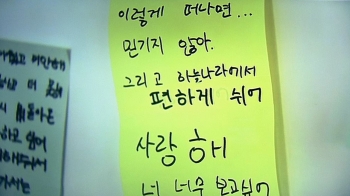 이렇게 떠나면...
믿기지 않아.
그리고 하늘나라에서
편하게 쉬어
사랑해
너 너무 보고싶어